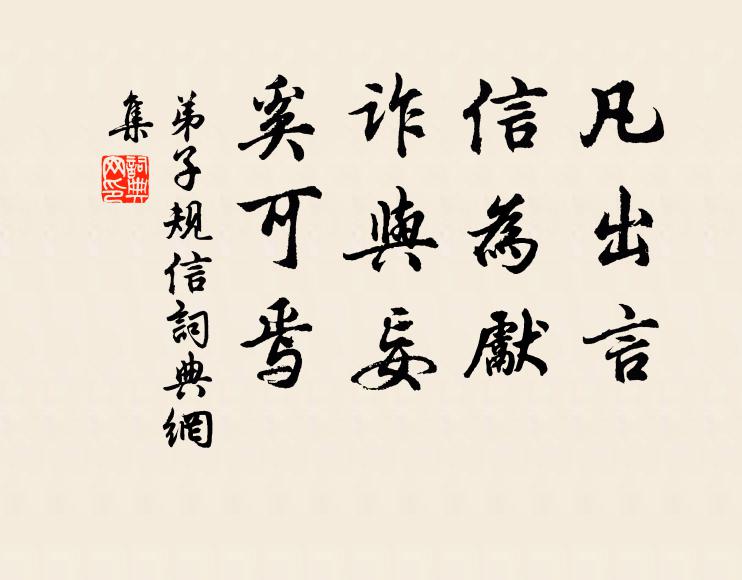 凡出言
信為獻
詐與妄
奚可焉
弟子規信詞典網
集
詞典
网印